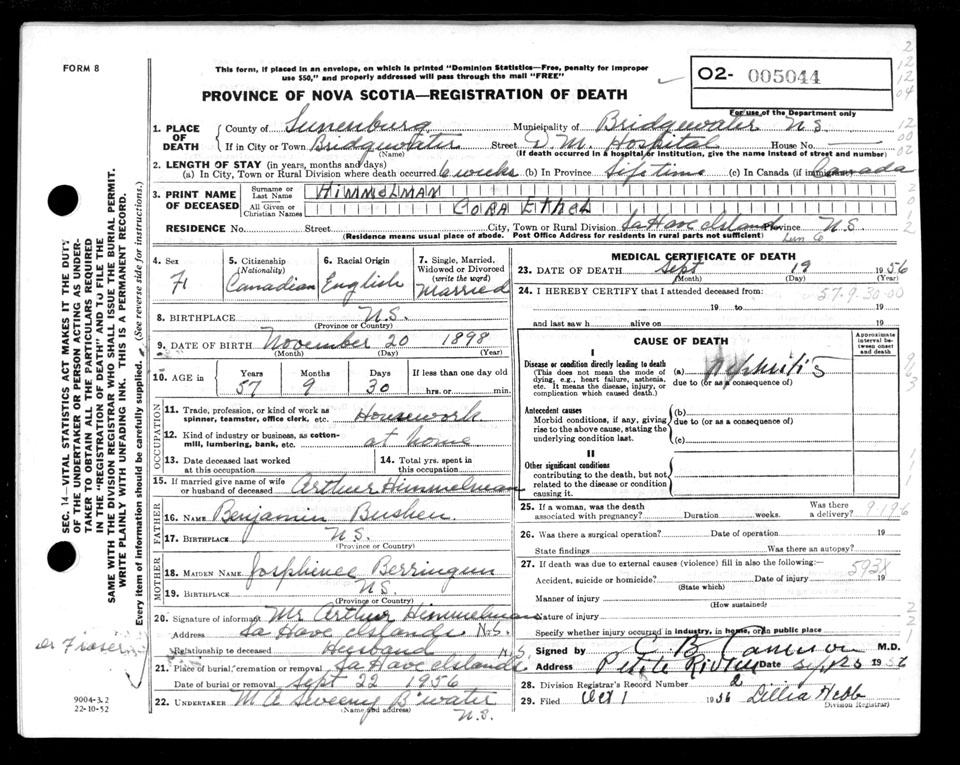 FORM 8
This form, if placed in an envelope, on which is printed "Dominion Statistics—Free, penalty for improper
use $50," and properly addressed will pass through the mail "FREE"
PROVINCE OF NOVA SCOTIA—REGISTRATION OF DEATH
O2- 005044
For use of the Department only
1. PLACE OF DEATH
County of Lunenburg Municipality of Bridgewater N.S.
If in City or Town Bridgwater (Name) Street D. M. Hospital House No.
(If death occurred in a hospital or institution, give the name instead of street and number)
2. LENGTH OF STAY (in years, months and days)
(a) In City, Town or Rural Division where death occurred 6 weeks (b) In Province Lifetime (c) In Canada (if immigrant) Canada
3. PRINT NAME OF DECEASED
Surname or Last Name HIMMELMAN
All Given or Christian Names CORA ETHEL
RESIDENCE No. Street City, Town or Rural Division La Have Island Province N.S.
(Residence means usual place of abode. Post Office Address for residents in rural parts not sufficient) Lun Co
4. Sex
F
5. Citizenship (Nationality)
Canadian
6. Racial Origin
English
7. Single, Married, Widowed or Divorced (write the word)
Married
8. BIRTHPLACE N.S.
(Province or Country)
9. DATE OF BIRTH November 20 1898
(Month) (Day) (Year)
10. AGE in Years Months Days If less than one day
57 9 30 hrs. or min.
OCCUPATION
11. Trade, profession, or kind of work as spinner, teamster, office clerk, etc. Housework
12. Kind of industry or business, as cotton-mill, lumbering, bank, etc. at home
13. Date deceased last worked at this occupation
14. Total yrs. spent in this occupation
15. If married give name of wife or husband of deceased Arthur Himmelman
FATHER
16. NAME Benjamin Bushen
17. BIRTHPLACE N.S.
(Province or Country)
MOTHER
18. MAIDEN NAME Josphinee
19. BIRTHPLACE N.S.
(Province or Country)
20. Signature of informant Mr Arthur Himmelman
Address La Have Islands N.S.
Relationship to deceased Husband
21. Place of burial, cremation or removal La Have Islands N.S.
Date of burial or removal Sept 22 1956
22. UNDERTAKER M A Sweeny B'water
(Name and address) N.S.
MEDICAL CERTIFICATE OF DEATH
23. DATE OF DEATH Sept 19 1956
(Month) (Day) (Year)
24. I HEREBY CERTIFY that I attended deceased from: 57-9-30-00
19 to 19
and last saw h alive on 19
CAUSE OF DEATH
Approximate interval between onset and death
I
Disease or condition directly leading to death
(This does not mean the mode of dying, e.g., heart failure, asthenia, etc. It means the disease, injury, or complication which caused death.)
(a) Nephritis
due to (or as a consequence of)
Antecedent causes
Morbid conditions, if any, giving rise to the above cause, stating the underlying condition last.
(b)
due to (or as a consequence of)
(c)
II
Other significant conditions
contributing to the death, but not related to the disease or condition causing it.
25. If a woman, was the death associated with pregnancy? Duration weeks. Was there a delivery?
26. Was there a surgical operation? Date of operation 19
State findings Was there an autopsy?
27. If death was due to external causes (violence) fill in also the following:— 593X
Accident, suicide or homicide? Date of injury 19
(State which)
Manner of injury
(How sustained)
Nature of injury
Specify whether injury occurred in industry, in home, or in public place
Signed by C B Cameron M.D.
Address Petite Riviere Date Sept 23 1956
28. Division Registrar's Record Number 2
29. Filed Oct 1 1956 Lillia Hebb
Division Registrar)
SEC. 14—VITAL STATISTICS ACT MAKES IT THE DUTY
OF THE UNDERTAKER OR PERSON ACTING AS UNDER-
TAKER TO OBTAIN ALL THE PARTICULARS REQUIRED
IN THE "REGISTRATION OF DEATH" AND TO FILE THE
SAME WITH THE DIVISION REGISTRAR WHO SHALL ISSUE THE BURIAL PERMIT.
WRITE PLAINLY WITH UNFADING INK. THIS IS A PERMANENT RECORD.
Every item of information should be carefully supplied. (See reverse side for instructions.)
Dr Fraser
9004-3.2
22-10-52